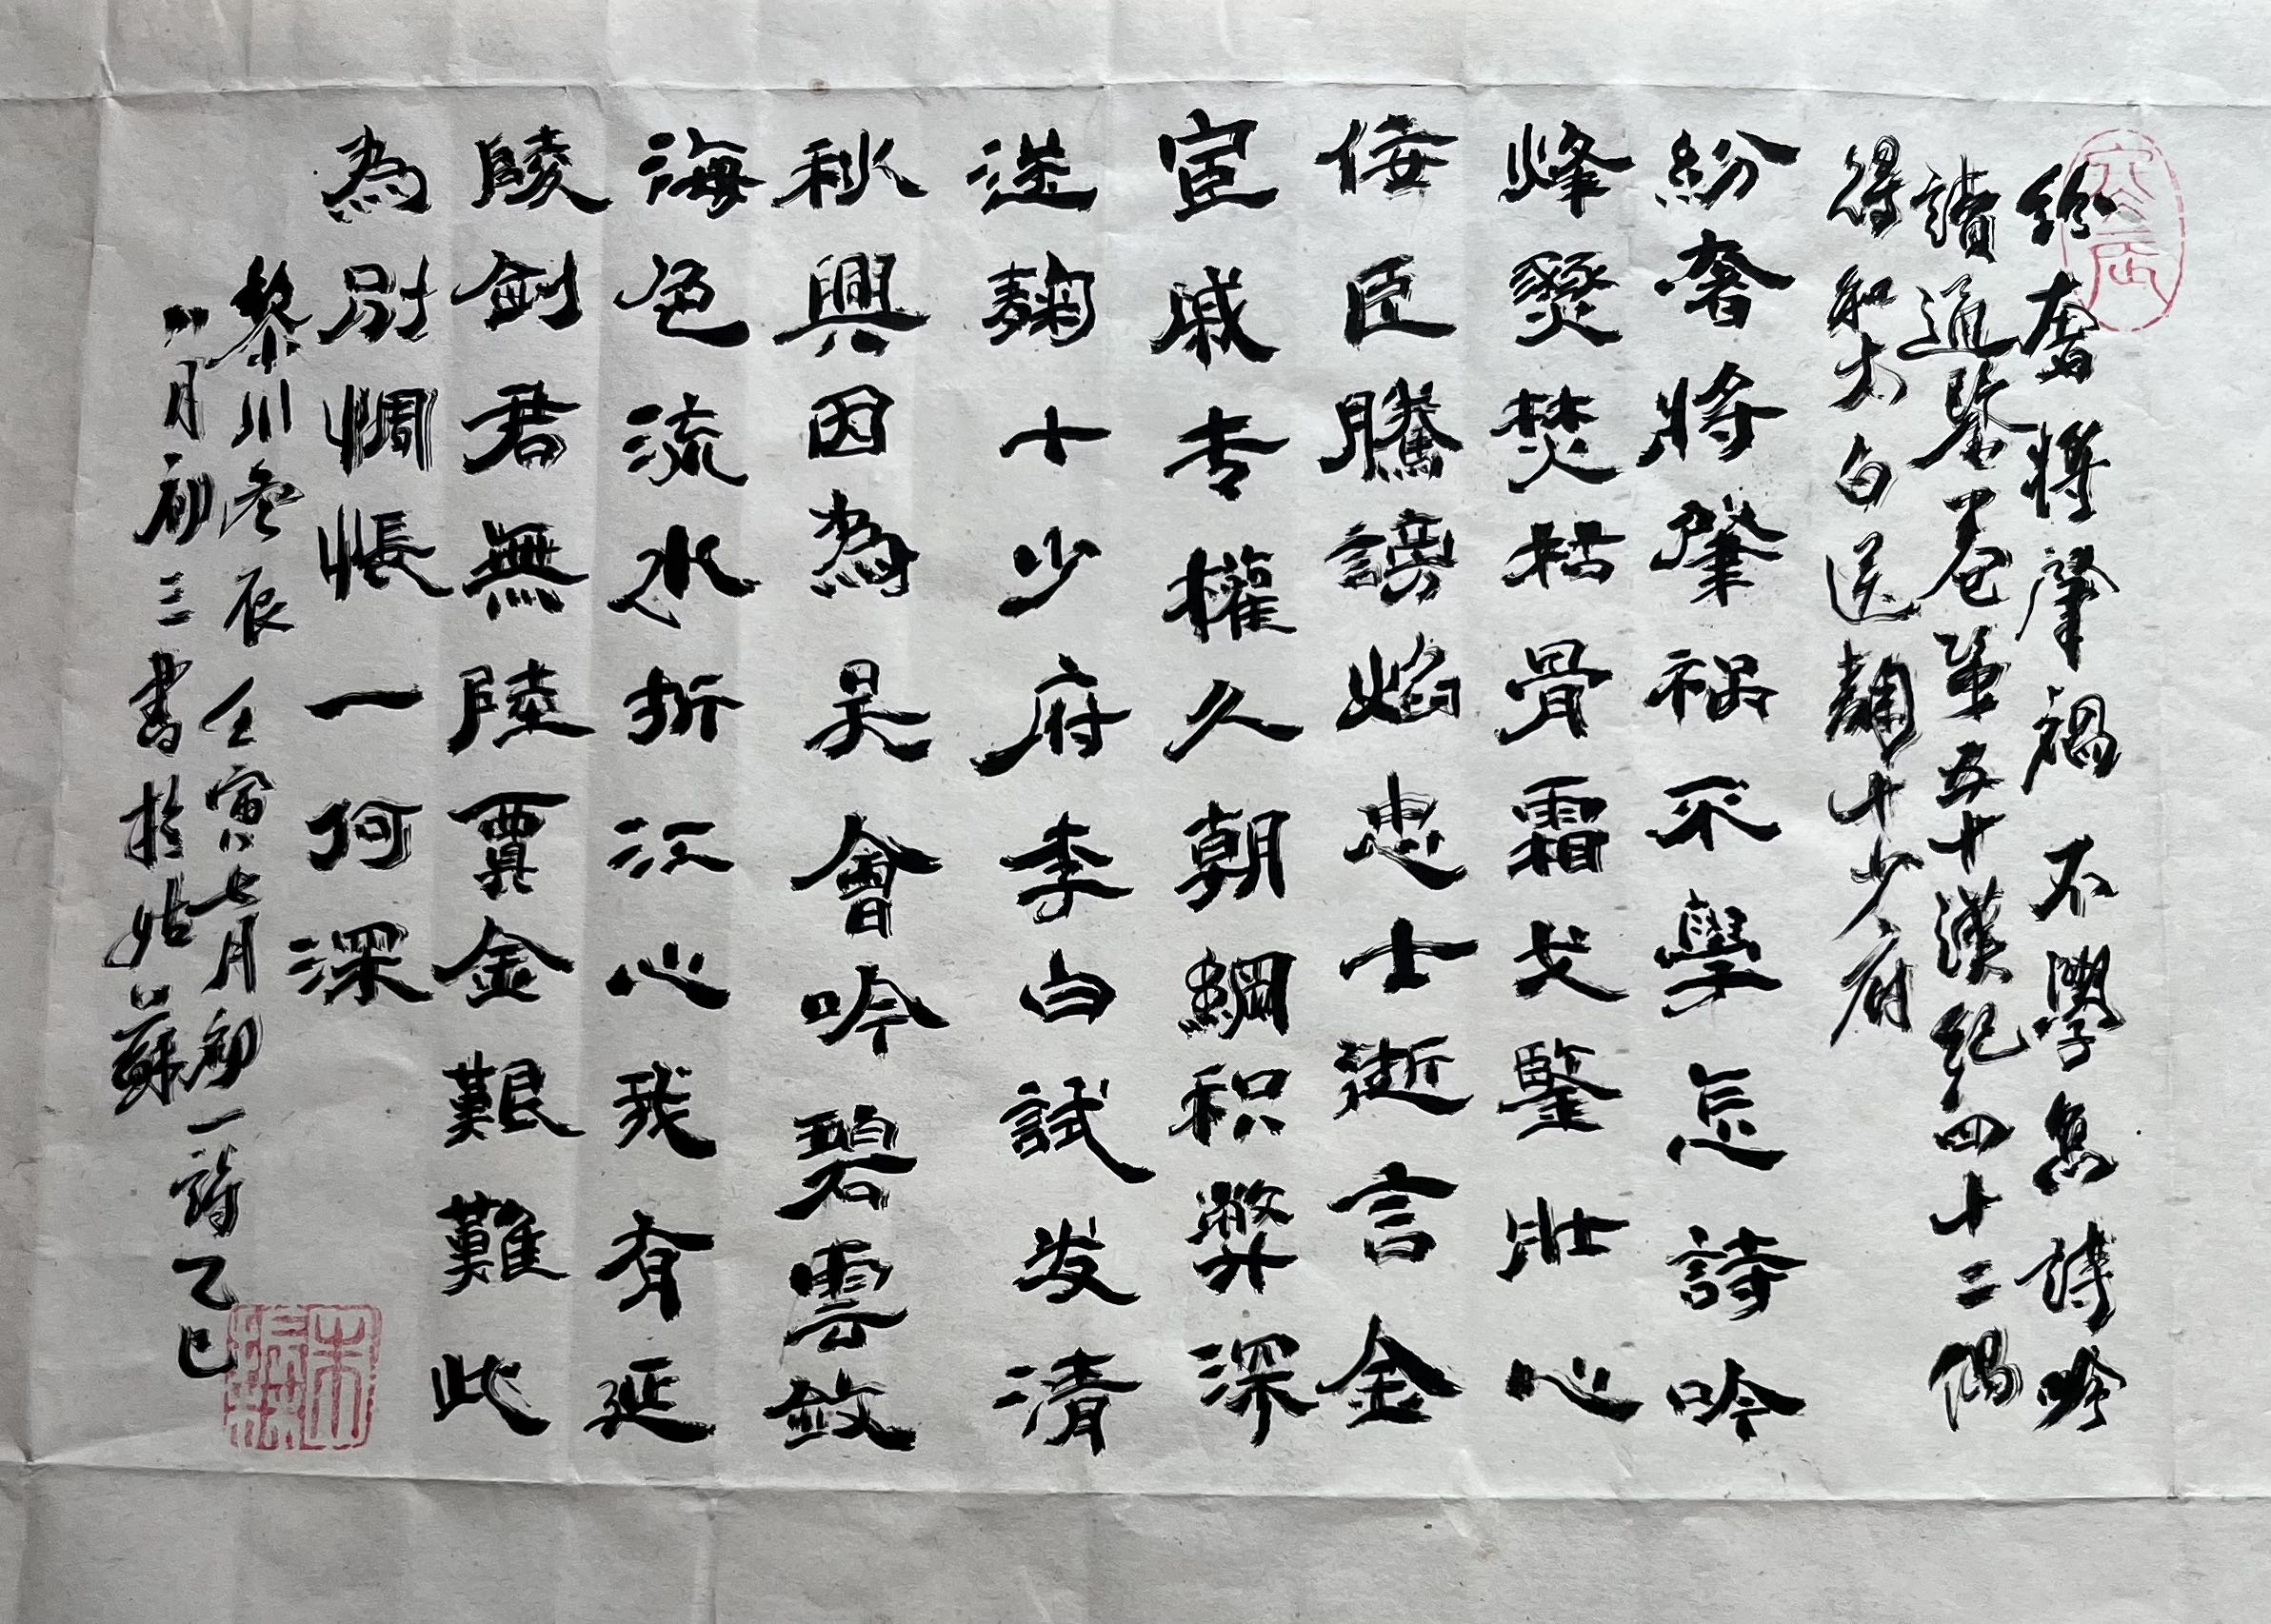 紛奢將肇禍不學怎詩吟
讀通鑒卷第五十漢紀四十二偶
得和太白送麹十少府
紛奢將肇祸不學怎詩吟
烽燹焚枯骨霜戈鑒壯心
佞臣騰謗焰忠士逝言金
宦戚专權久朝綱积弊深
送麹十少府李白試发清
秋興因為吴會吟碧雲斂
海色流水折江心我有延
陵劍君無陸賈金艱難此
為别惆悵一何深
黎川
辰壬寅七月初一詩乙巳
八月初三書於姑蘇